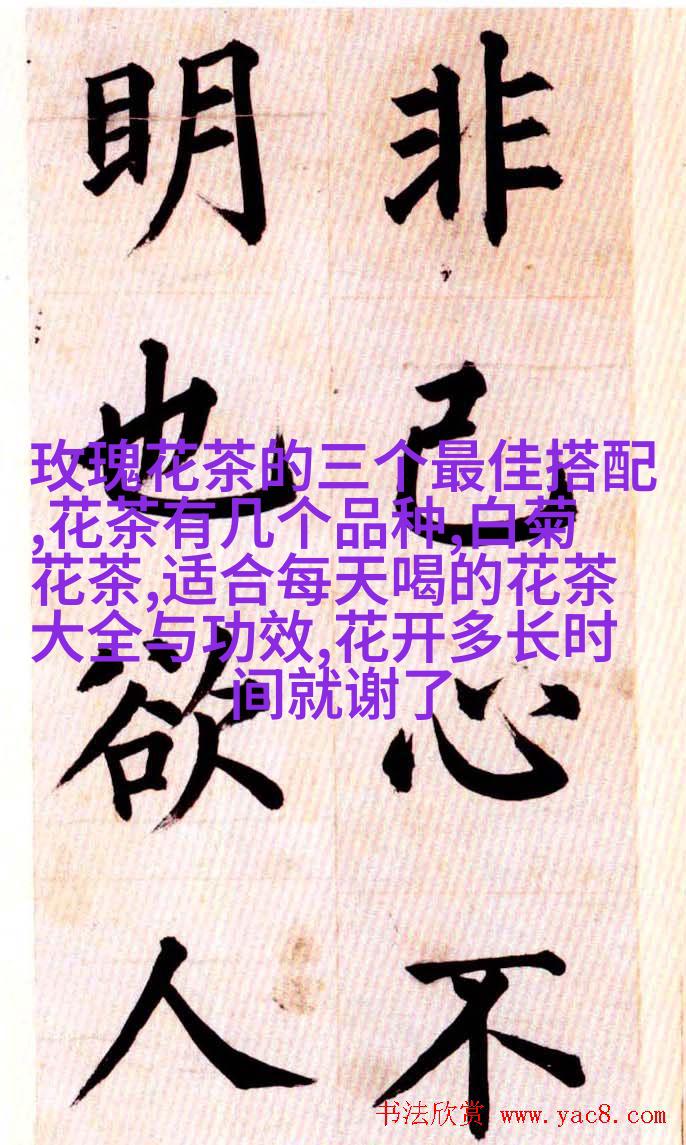 非己心不
明也欲人
玫瑰花茶的三个最佳搭配
,花茶有几个品种,白菊
花茶,适合每天喝的花茶
大全与功效,花开多长时
间就谢了
书法欣赏 www.yac8.com